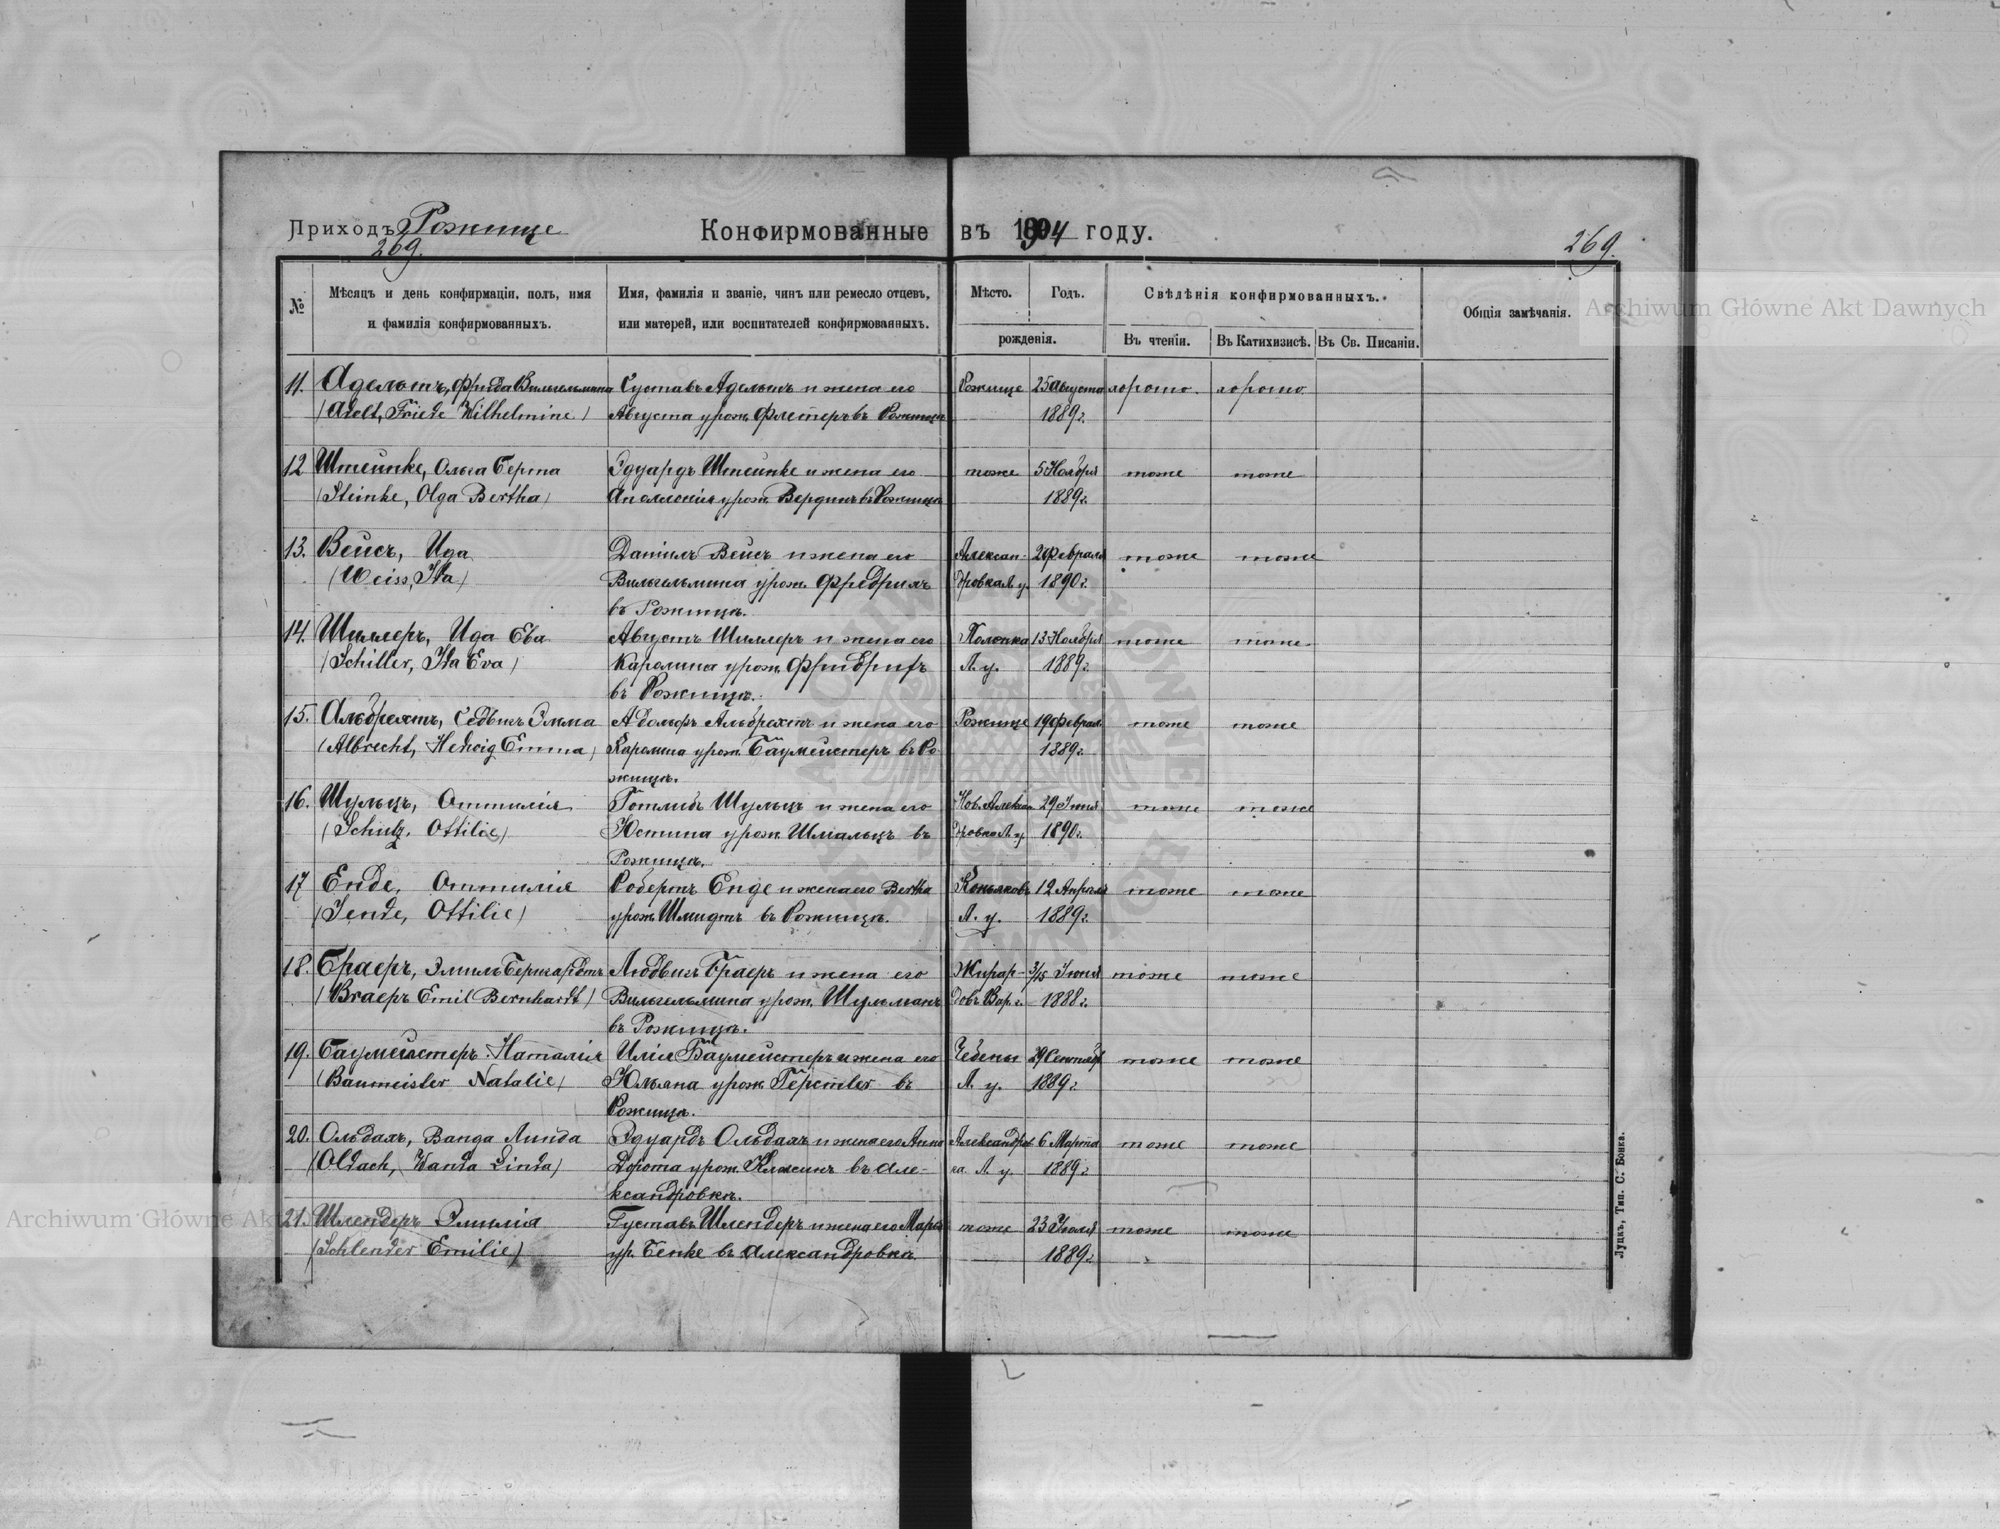 Приходъ Рожище
Конфирмованные въ 1904 году.
269.
269.
№
Мѣсяцъ и день конфирмаціи, полъ, имя
и фамилія конфирмованныхъ.
Имя, фамилія и званіе, чинъ или ремесло отцевъ,
или матерей, или воспитателей конфирмованныхъ.
Мѣсто.
Годъ.
рожденія.
Свѣдѣнія конфирмованныхъ.
Въ чтеніи.
Въ Катихизисѣ.
Въ Св. Писаніи.
Общія замѣчанія.
11. Адельтъ, Фрида Вильгельмина Густавъ Адельтъ и жена его Рожище 25 Августа хорошо. хорошо.
(Adelt, Friede Wilhelmine) Августа урож. Флетеръ въ Рожищѣ 1889г.
12 Штейнке, Ольга Берта Эдуардъ Штейнке и жена его тоже 5 Ноября тоже тоже
(Steinke, Olga Bertha) Аполлонія урож. въ Рожищѣ 1889г.
13. Вейсъ, Ида Даніилъ Вейсъ и жена его Алексан- 2 Февраля тоже тоже
(Weiss, Ida) Вильгельмина урож. Фридрихъ дровка Л. у. 1890г.
въ Рожищѣ.
14. Шиллеръ, Ида Ева Августъ Шиллеръ и жена его Полонка 13 Ноября тоже тоже
(Schiller, Ida Eva) Каролина урож. Фридрихъ Л. у. 1889г.
въ Рожищѣ.
15. Альбрехтъ, Гедвигъ Эмма Адольфъ Альбрехтъ и жена его Рожище 19 Феврал. тоже тоже
(Albrecht, Hedwig Emma) Каролина урож. Баумейстеръ въ Ро- 1889г.
жищѣ.
16. Шульцъ, Оттилія Готлибъ Шульцъ и жена его Нов. Алексан- 29 тоже тоже
(Schulz, Ottilie) Юстина урож. Шмальцъ въ дровка Л. у. 1890г.
Рожищѣ.
17 Енде, Оттилія Робертъ Енде и жена его Bertha 12 Апрѣля тоже тоже
(Jende, Ottilie) урож. Шмидтъ въ Рожищѣ. Л. у. 1889г.
18. Браеръ, Эмиль Бернгардтъ Людвигъ Браеръ и жена его Жирар- 3/15 Іюня тоже тоже
(Braeръ Emil Bernhardt) Вильгельмина урож. Шульманъ довъ Вар. г. 1888г.
въ Рожищѣ.
19. Баумейстеръ Наталія Юлій Баумейстеръ и жена его 29 Сентябр. тоже тоже
(Baumeister Natalie) Юльяна урож. въ Л. у. 1889г.
Рожищѣ.
20. Ольдахъ, Ванда Линда Эдуардъ Ольдахъ и жена его Анна Александров- 6 Марта тоже тоже
(Oldach, Wanda Linda) Дорота урож. въ Але- ка Л. у. 1889г.
ксандровкѣ.
21. Шлендеръ Эмилія Густавъ Шлендеръ и жена его Марія тоже 23 Іюля тоже тоже
(Schlender Emilie) ур. Бенке въ Александровкѣ 1889г.
Луцкъ, Тип. С. Бонка.
Archiwum Główne Akt Dawnych
Archiwum Główne Akt Dawnych